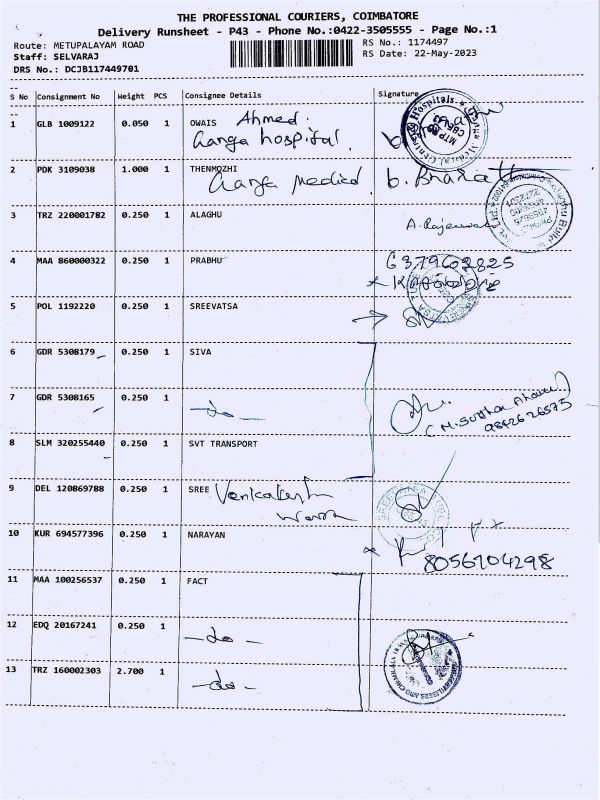 THE PROFESSIONAL COURIERS, COIMBATORE
Delivery Runsheet - P43 - Phone No.:0422-3505555 - Page No.:1
Route: METUPALAYAM ROAD RS No.: 1174497
Staff: SELVARAJ RS Date: 22-May-2023
DRS No.: DCJB117449701
S No Consignment No Weight PCS Consignee Details Signature
1 GLB 1009122 0.050 1 OWAIS Ahmed.
Ganga hospital.
2 PDK 3109038 1.000 1 THENMOZHI
Ganga Medical. b. Bharath
3 TRZ 220001782 0.250 1 ALAGHU
4 MAA 860000322 0.250 1 PRABHU
5 POL 1192220 0.250 1 SREEVATSA
6 GDR 5308179 0.250 1 SIVA
7 GDR 5308165 0.250 1
-do-
9842626575
8 SLM 320255440 0.250 1 SVT TRANSPORT
9 DEL 120869788 0.250 1 SREE Venkatesh
10 KUR 694577396 0.250 1 NARAYAN
8056704298
11 MAA 100256537 0.250 1 FACT
12 EDQ 20167241 0.250 1
-do-
13 TRZ 160002303 2.700 1
-do-